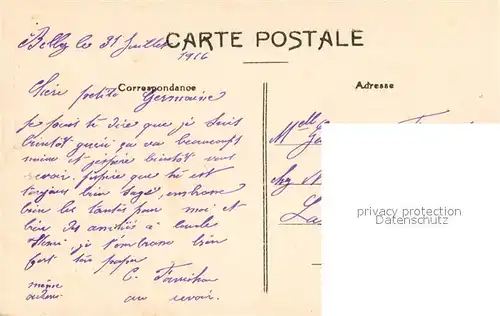 Belley le 31 Juillet
CARTE POSTALE
1916
Correspondance
Adresse
Chere petite Germaine
Je peus te dire que je suis
bientôt gueri ça va beaucoup
mieux et j'espère bientôt vous
revoir. J'espère que tu est
toujours bien sage, embrasse
bien les tantes pour moi et
bien des amitiés à l'oncle
Henri, je t'embrasse bien
fort ton papa
C.
même
au revoir.
Melle
chez
privacy protection
watermark